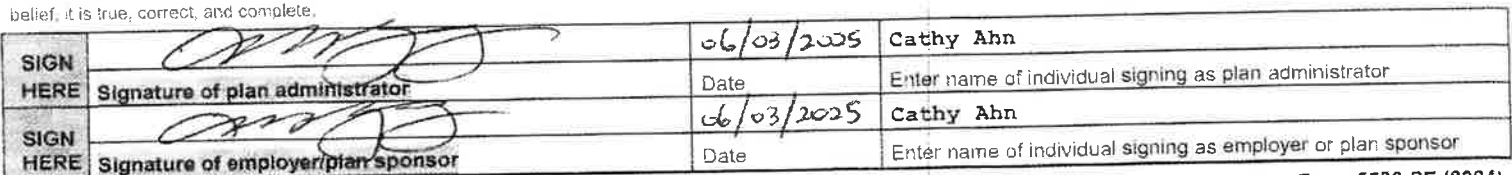 belief, it is true, correct, and complete.
SIGN HERE
06/03/2025 Cathy Ahn
Signature of plan administrator Date Enter name of individual signing as plan administrator
SIGN HERE
06/03/2025 Cathy Ahn
Signature of employer/plan sponsor Date Enter name of individual signing as employer or plan sponsor